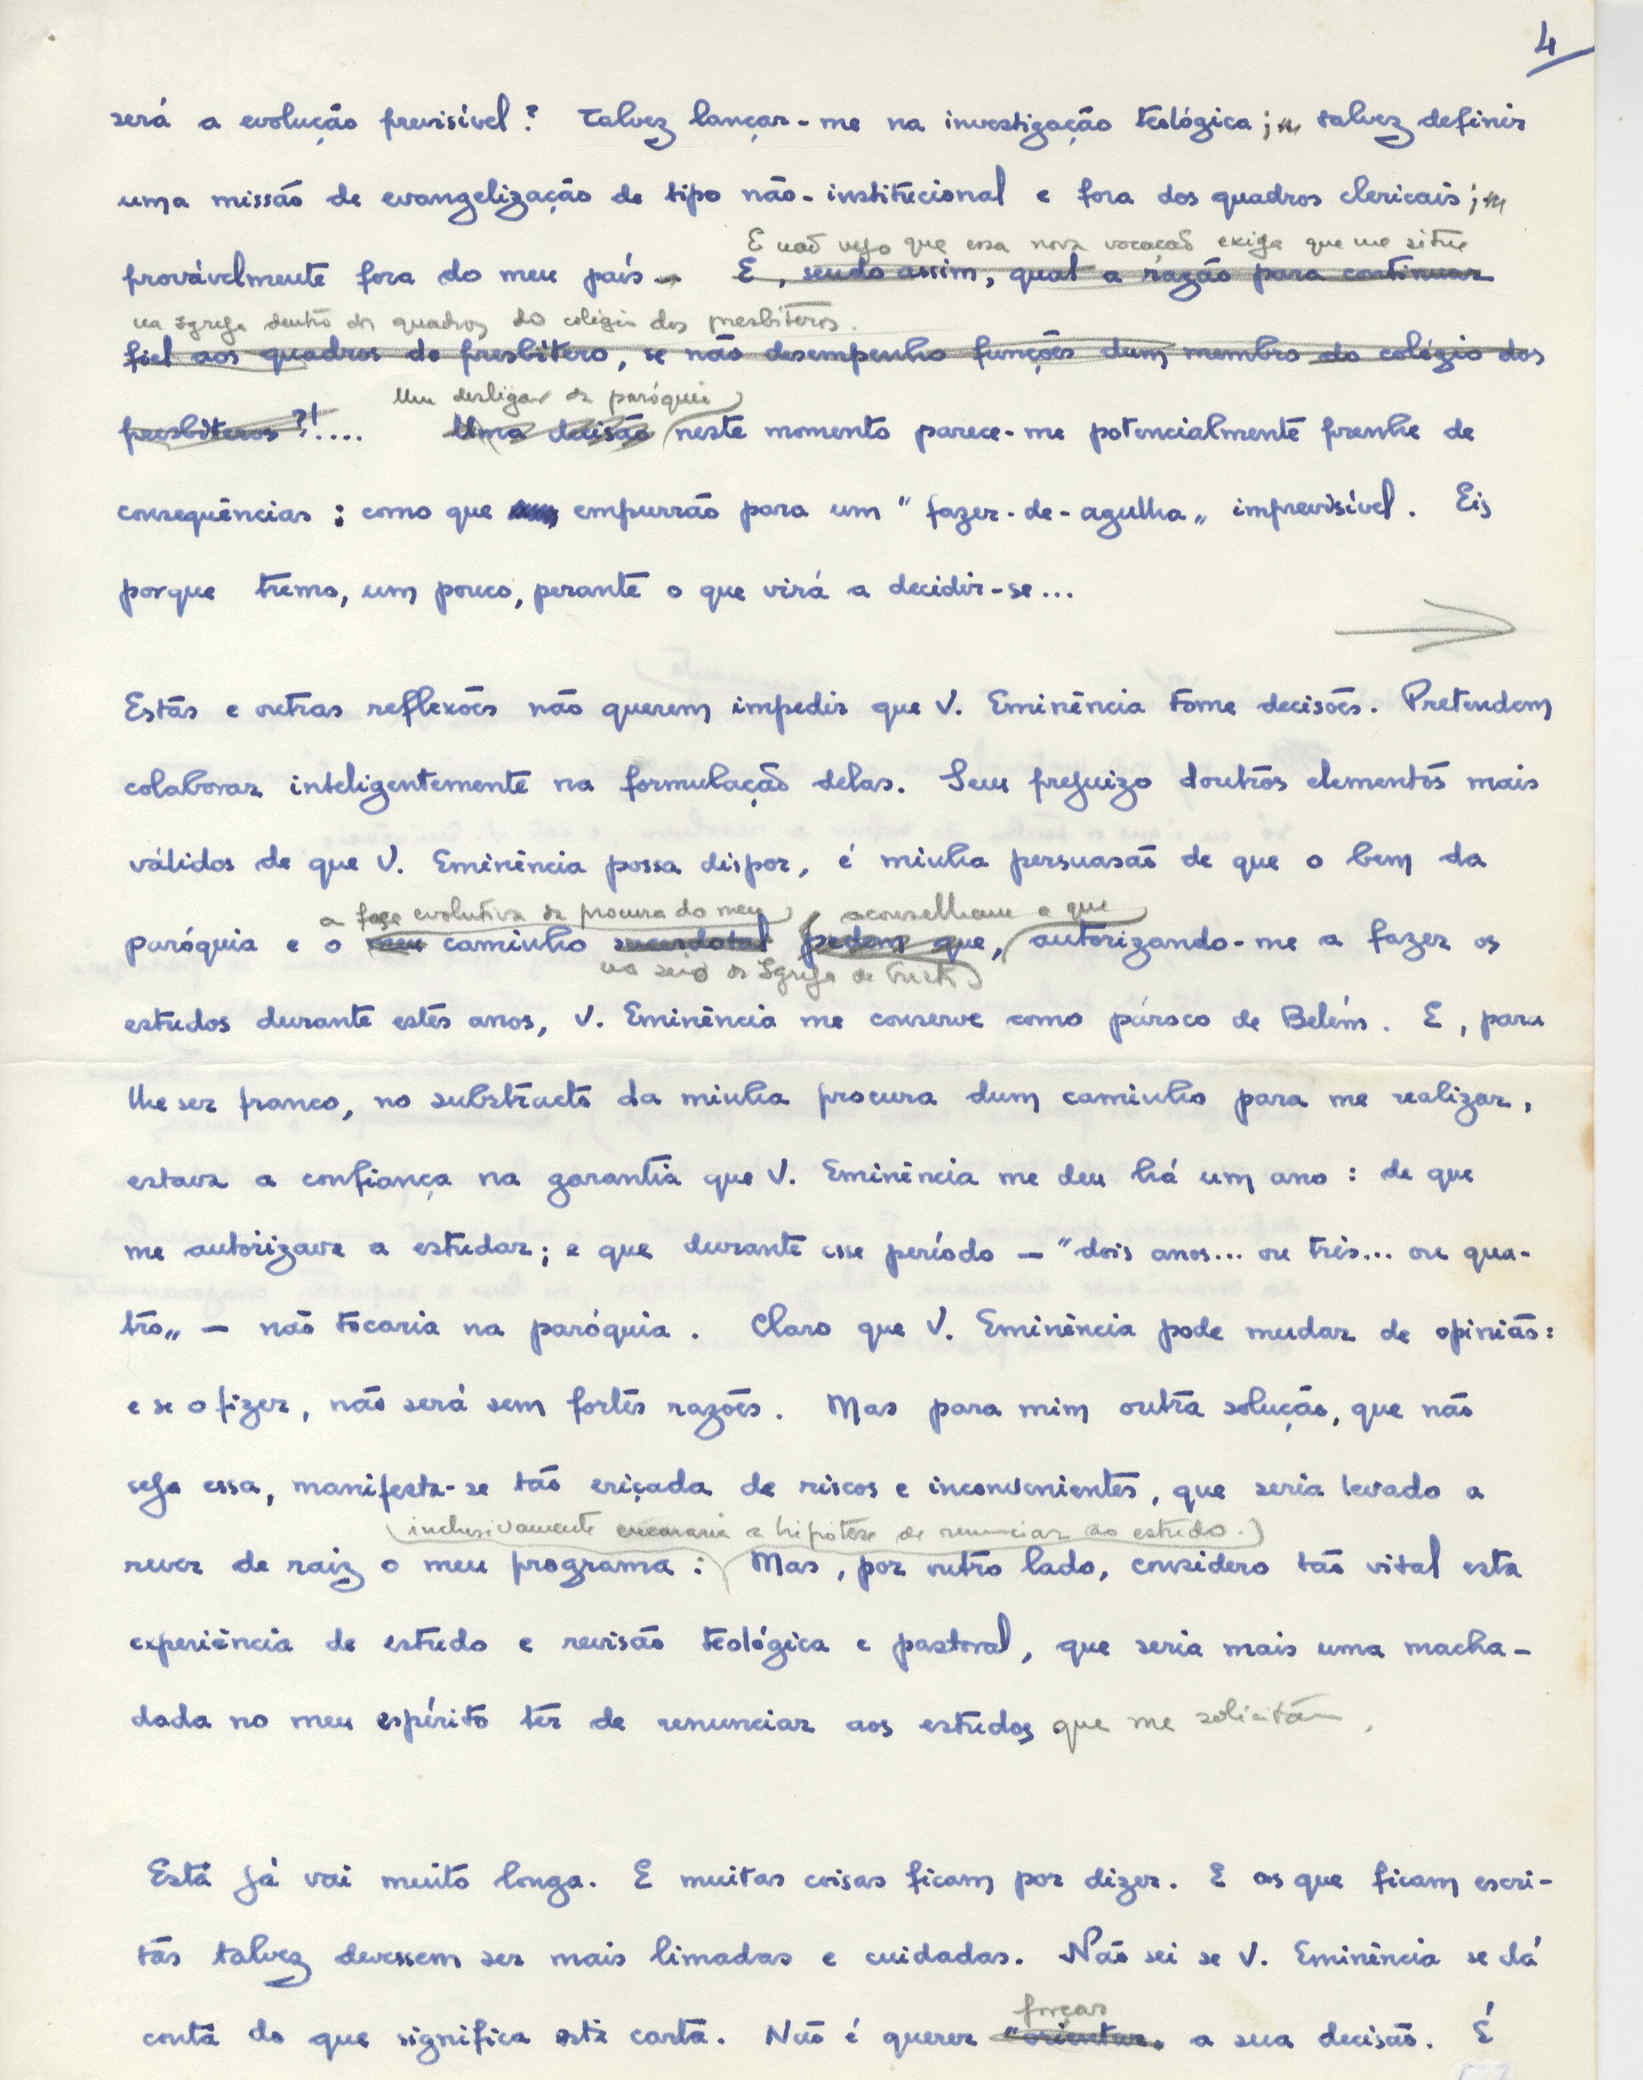 4
será a evolução previsível? Talvez lançar-me na investigação teológica; talvez definir
uma missão de evangelização de tipo não-institucional e fora dos quadros clericais;
E não vejo que essa nova vocação exija que me situe
provávelmente fora do meu país. E, sendo assim, qual a razão para continuar
na Igreja dentro dos quadros do colégio dos presbíteros.
fiel aos quadros do presbítero, se não desempenho funções dum membro do colégio dos
Um desligar da paróquia
presbíteros?!.... Uma decisão neste momento parece-me potencialmente prenhe de
consequências: como que empurrão para um "fazer-de-agulha" imprevisível. Eis
porque tremo, um pouco, perante o que virá a decidir-se...
Estas e outras reflexões não querem impedir que V. Eminência tome decisões. Pretendem
colaborar inteligentemente na formulação delas. Sem prejuizo doutros elementos mais
válidos de que V. Eminência possa dispor, é minha persuasão de que o bem da
a fase evolutiva da procura do meu aconselham a que
paróquia e o meu caminho sacerdotal pedem que, autorizando-me a fazer os
no seio da Igreja de Cristo
estudos durante estes anos, V. Eminência me conserve como pároco de Belém. E, para
lhe ser franco, no substracto da minha procura dum caminho para me realizar,
estava a confiança na garantia que V. Eminência me deu há um ano: de que
me autorizava a estudar; e que durante esse período — "dois anos... ou três... ou qua-
tro" — não tocaria na paróquia. Claro que V. Eminência pode mudar de opinião:
e se o fizer, não será sem fortes razões. Mas para mim outra solução, que não
seja essa, manifesta-se tão eriçada de riscos e inconvenientes, que seria levado a
(inclusivamente encararia a hipótese de renunciar ao estudo.)
rever de raiz o meu programa: Mas, por outro lado, considero tão vital esta
experiência de estudo e revisão teológica e pastoral, que seria mais uma macha-
dada no meu espírito ter de renunciar aos estudos que me solicitam.
Esta já vai muito longa. E muitas coisas ficam por dizer. E as que ficam escri-
tas talvez devessem ser mais limadas e cuidadas. Não sei se V. Eminência se dá
forçar
conta do que significa esta carta. Não é querer "orientar" a sua decisão. É